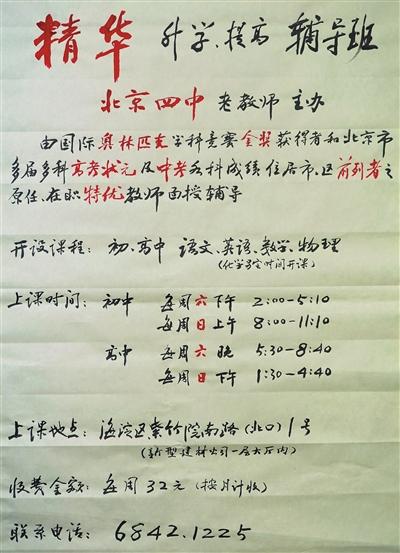 精华 升学、提高 辅导班
北京四中 老教师 主办
由国际奥林匹克学科竞赛金奖获得者和北京市
多届多科高考状元及中考各科成绩位居市、区前列者之
原任、在职特优教师面授辅导
开设课程：初、高中 语文、英语、数学、物理
(化学另定时间开课)
上课时间：初中 每周六下午 2:00-5:10
每周日上午 8:00-11:10
高中 每周六晚 5:30-8:40
每周日下午 1:30-4:40
上课地点：海淀区紫竹院南路(北口)1号
(新型建材公司一层大厅内)
收费金额：每周32元(按月计收)
联系电话：6842.1225